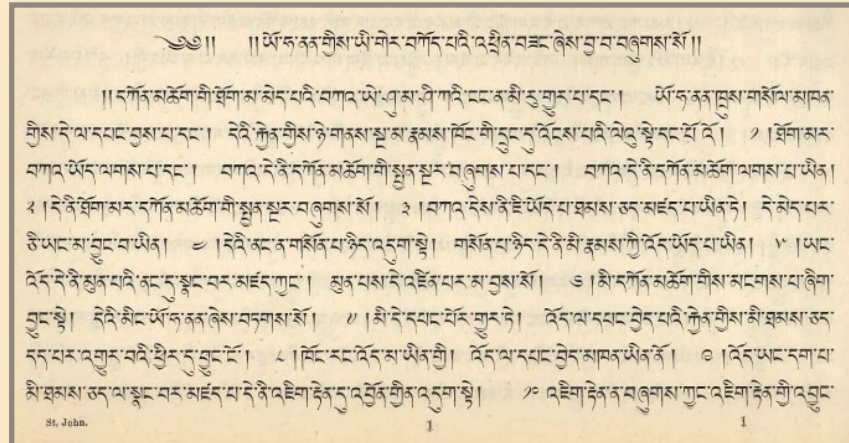 ༄༅།། །།ཡོ་ཧ་ནན་གྱིས་ཡི་གེར་བཀོད་པའི་འཕྲིན་བཟང་ཞེས་བྱ་བ་བཞུགས་སོ།།
།།དཀོན་མཆོག་གི་ཐོག་མ་མེད་པའི་བཀའ་ཡེ་ཤུ་མ་ཤི་ཀའི་ངང་ན་མི་རུ་གྱུར་པ་དང་། ཡོ་ཧ་ནན་ཁྲུས་གསོལ་མཁན་
གྱིས་དེ་ལ་དཔང་བྱས་པ་དང་། དེའི་རྐྱེན་གྱིས་ཉེ་གནས་སྔ་མ་རྣམས་ཁོང་གི་དྲུང་དུ་འོངས་པའི་ལེའུ་སྟེ་དང་པོ་འོ། ༡ །ཐོག་མར་
བཀའ་ཡོད་ལགས་པ་དང་། བཀའ་དེ་ནི་དཀོན་མཆོག་གི་སྤྱན་སྔར་བཞུགས་པ་དང་། བཀའ་དེ་ནི་དཀོན་མཆོག་ལགས་པ་ཡིན།
༢ །དེ་ནི་ཐོག་མར་དཀོན་མཆོག་གི་སྤྱན་སྔར་བཞུགས་སོ། ༣ །བཀའ་དེས་ནི་ཇི་ཡོད་པ་ཐམས་ཅད་མཛད་པ་ཡིན་ཏེ། དེ་མེད་པར་
ཅི་ཡང་མ་བྱུང་བ་ཡིན། ༤ །དེའི་ནང་ན་གསོན་པ་ཉིད་འདུག་སྟེ། གསོན་པ་ཉིད་དེ་ནི་མི་རྣམས་ཀྱི་འོད་ཡོད་པ་ཡིན། ༥ །ཡང་
འོད་དེ་ནི་མུན་པའི་ནང་དུ་སྣང་བར་མཛད་ཀྱང་ མུན་པས་དེ་འཛིན་པར་མ་བྱས་སོ། ༦ །མི་དཀོན་མཆོག་གིས་མངགས་པ་ཞིག་
བྱུང་སྟེ། དེའི་མིང་ཡོ་ཧ་ནན་ཞེས་བཏགས་སོ། ༧ །མི་དེ་དཔང་པོར་གྱུར་ཏེ། འོད་ལ་དཔང་བྱེད་པའི་རྐྱེན་གྱིས་མི་ཐམས་ཅད་
དད་པར་འགྱུར་བའི་ཕྱིར་དུ་བྱུང་ངོ་། ༨ །ཁོང་རང་འོད་མ་ཡིན་གྱི། འོད་ལ་དཔང་བྱེད་མཁན་ཡིན་ནོ། ༩ །འོད་ཡང་དག་པ་
མི་ཐམས་ཅད་ལ་སྣང་བར་མཛད་པ་དེ་ནི་འཇིག་རྟེན་དུ་འབྱོན་གྱིན་འདུག་སྟེ། ༡༠ འཇིག་རྟེན་ན་བཞུགས་ཀྱང་འཇིག་རྟེན་གྱི་འབྱུང་
St. John. 1 1